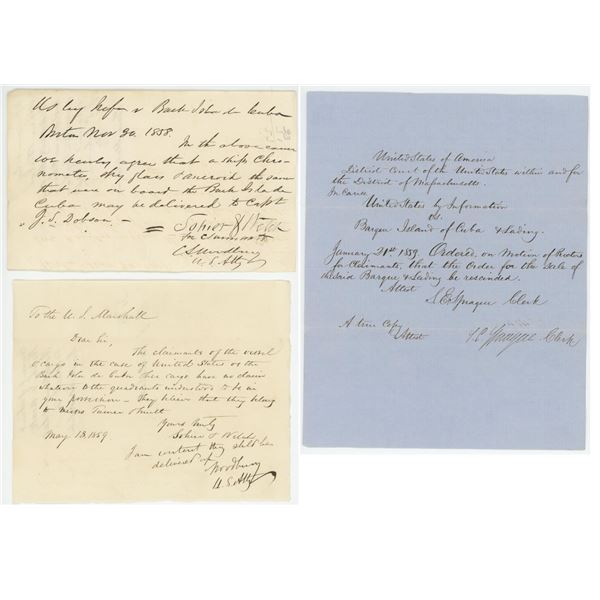 US by Infor v Bark Isla de Cuba
Boston Nov 20. 1858.
In the above cause
we hereby agree that a ship Chro-
nometer, spy glass & aneroid the same
that were on board the Bark Isla de
Cuba may be delivered to Capt
J. S. Dobson. -
Sohier & Welch
for Claimants
C L Woodbury
U. S. Atty
To the U. S. Marshall
Dear Sir,
The claimants of the vessel
& cargo in the case of United States vs the
Bark Isla de Cuba & her cargo have no claim
whatever to the quadrants understood to be in
your possession - They believe that they belong
to Messrs Turner &
Yours truly
May 13, 1859 Sohier & Welch
I am content they shld be
delivered up
Woodbury
U. S. Atty
United States of America
District Court of the United States within and for
the District of Massachusetts.
In Cause
United States by Information
vs.
Barque Island of Cuba & Lading.
January 21st 1859. Ordered, on Motion of Proctors
for Claimants, that the Order for the Sale of
the said Barque & Lading be rescinded.
Attest
S. E. Sprague Clerk
A true Copy
Attest S E Sprague Clerk